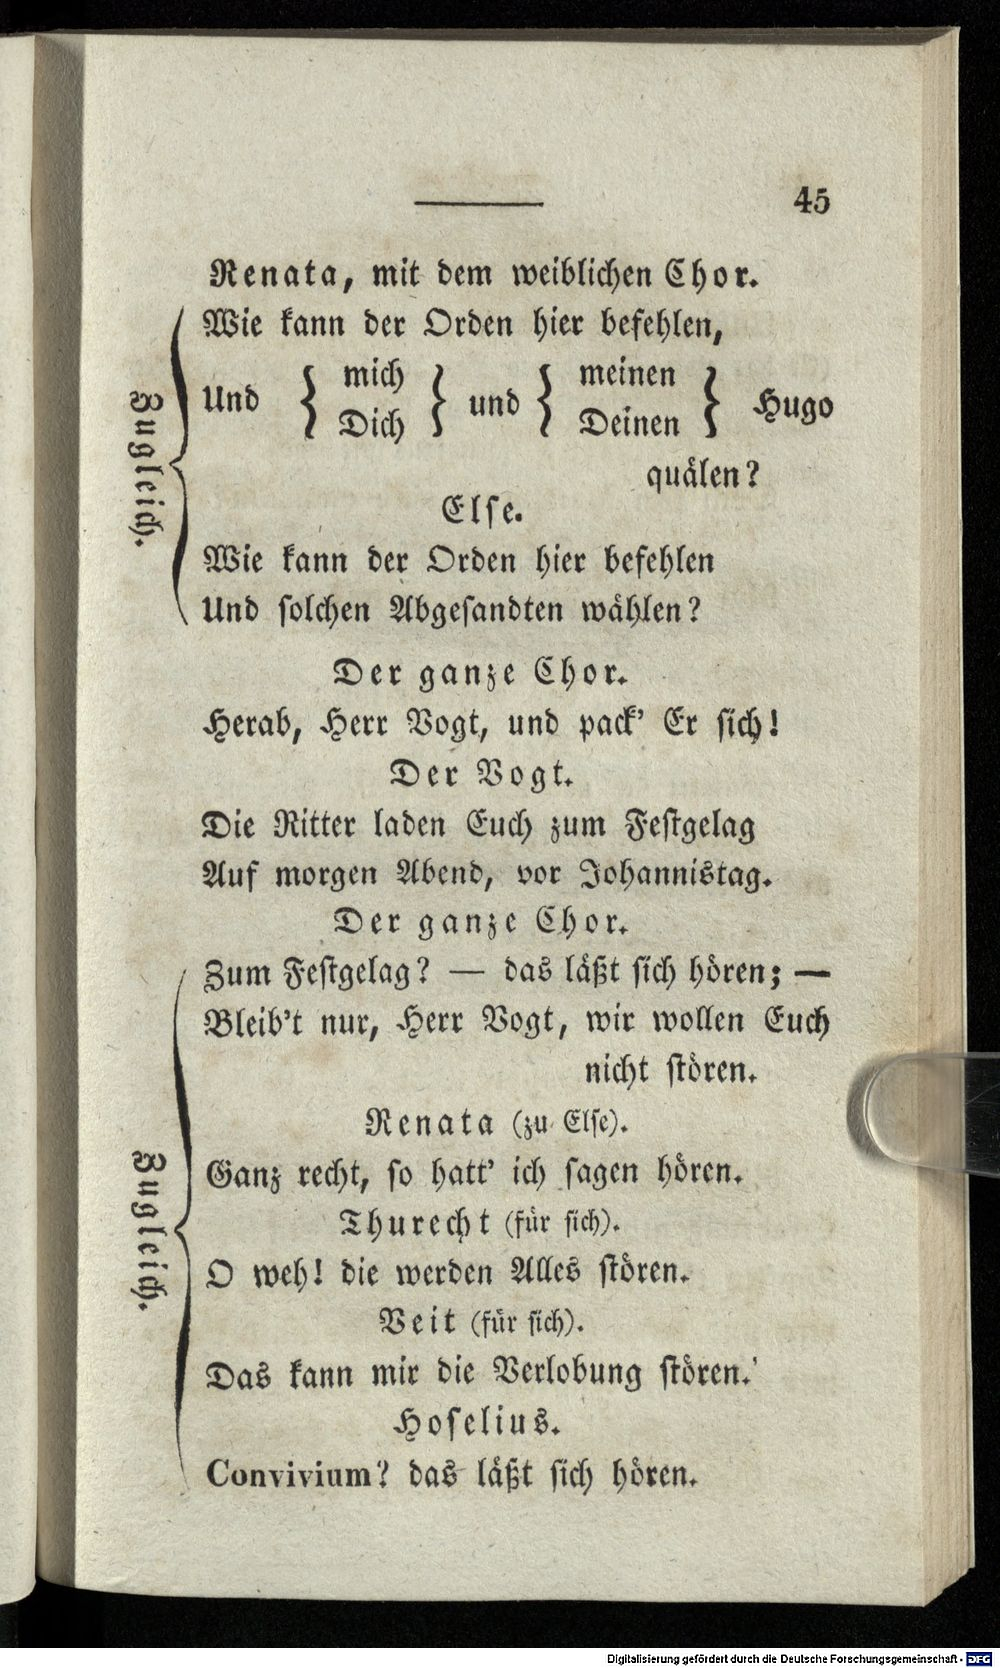 45
Renata, mit dem weiblichen Chor.
Wie kann der Orden hier befehlen,
Und { mich / Dich } und { meinen / Deinen } Hugo
quälen?
Else.
Wie kann der Orden hier befehlen
Und solchen Abgesandten wählen?
Zugleich.
Der ganze Chor.
Herab, Herr Vogt, und pack' Er sich!
Der Vogt.
Die Ritter laden Euch zum Festgelag
Auf morgen Abend, vor Johannistag.
Der ganze Chor.
Zum Festgelag? — das läßt sich hören; —
Bleib't nur, Herr Vogt, wir wollen Euch
nicht stören.
Renata (zu Else).
Ganz recht, so hatt' ich sagen hören.
Thurecht (für sich).
O weh! die werden Alles stören.
Veit (für sich).
Das kann mir die Verlobung stören.
Hoselius.
Convivium? das läßt sich hören.
Zugleich.
Digitalisierung gefördert durch die Deutsche Forschungsgemeinschaft - DFG